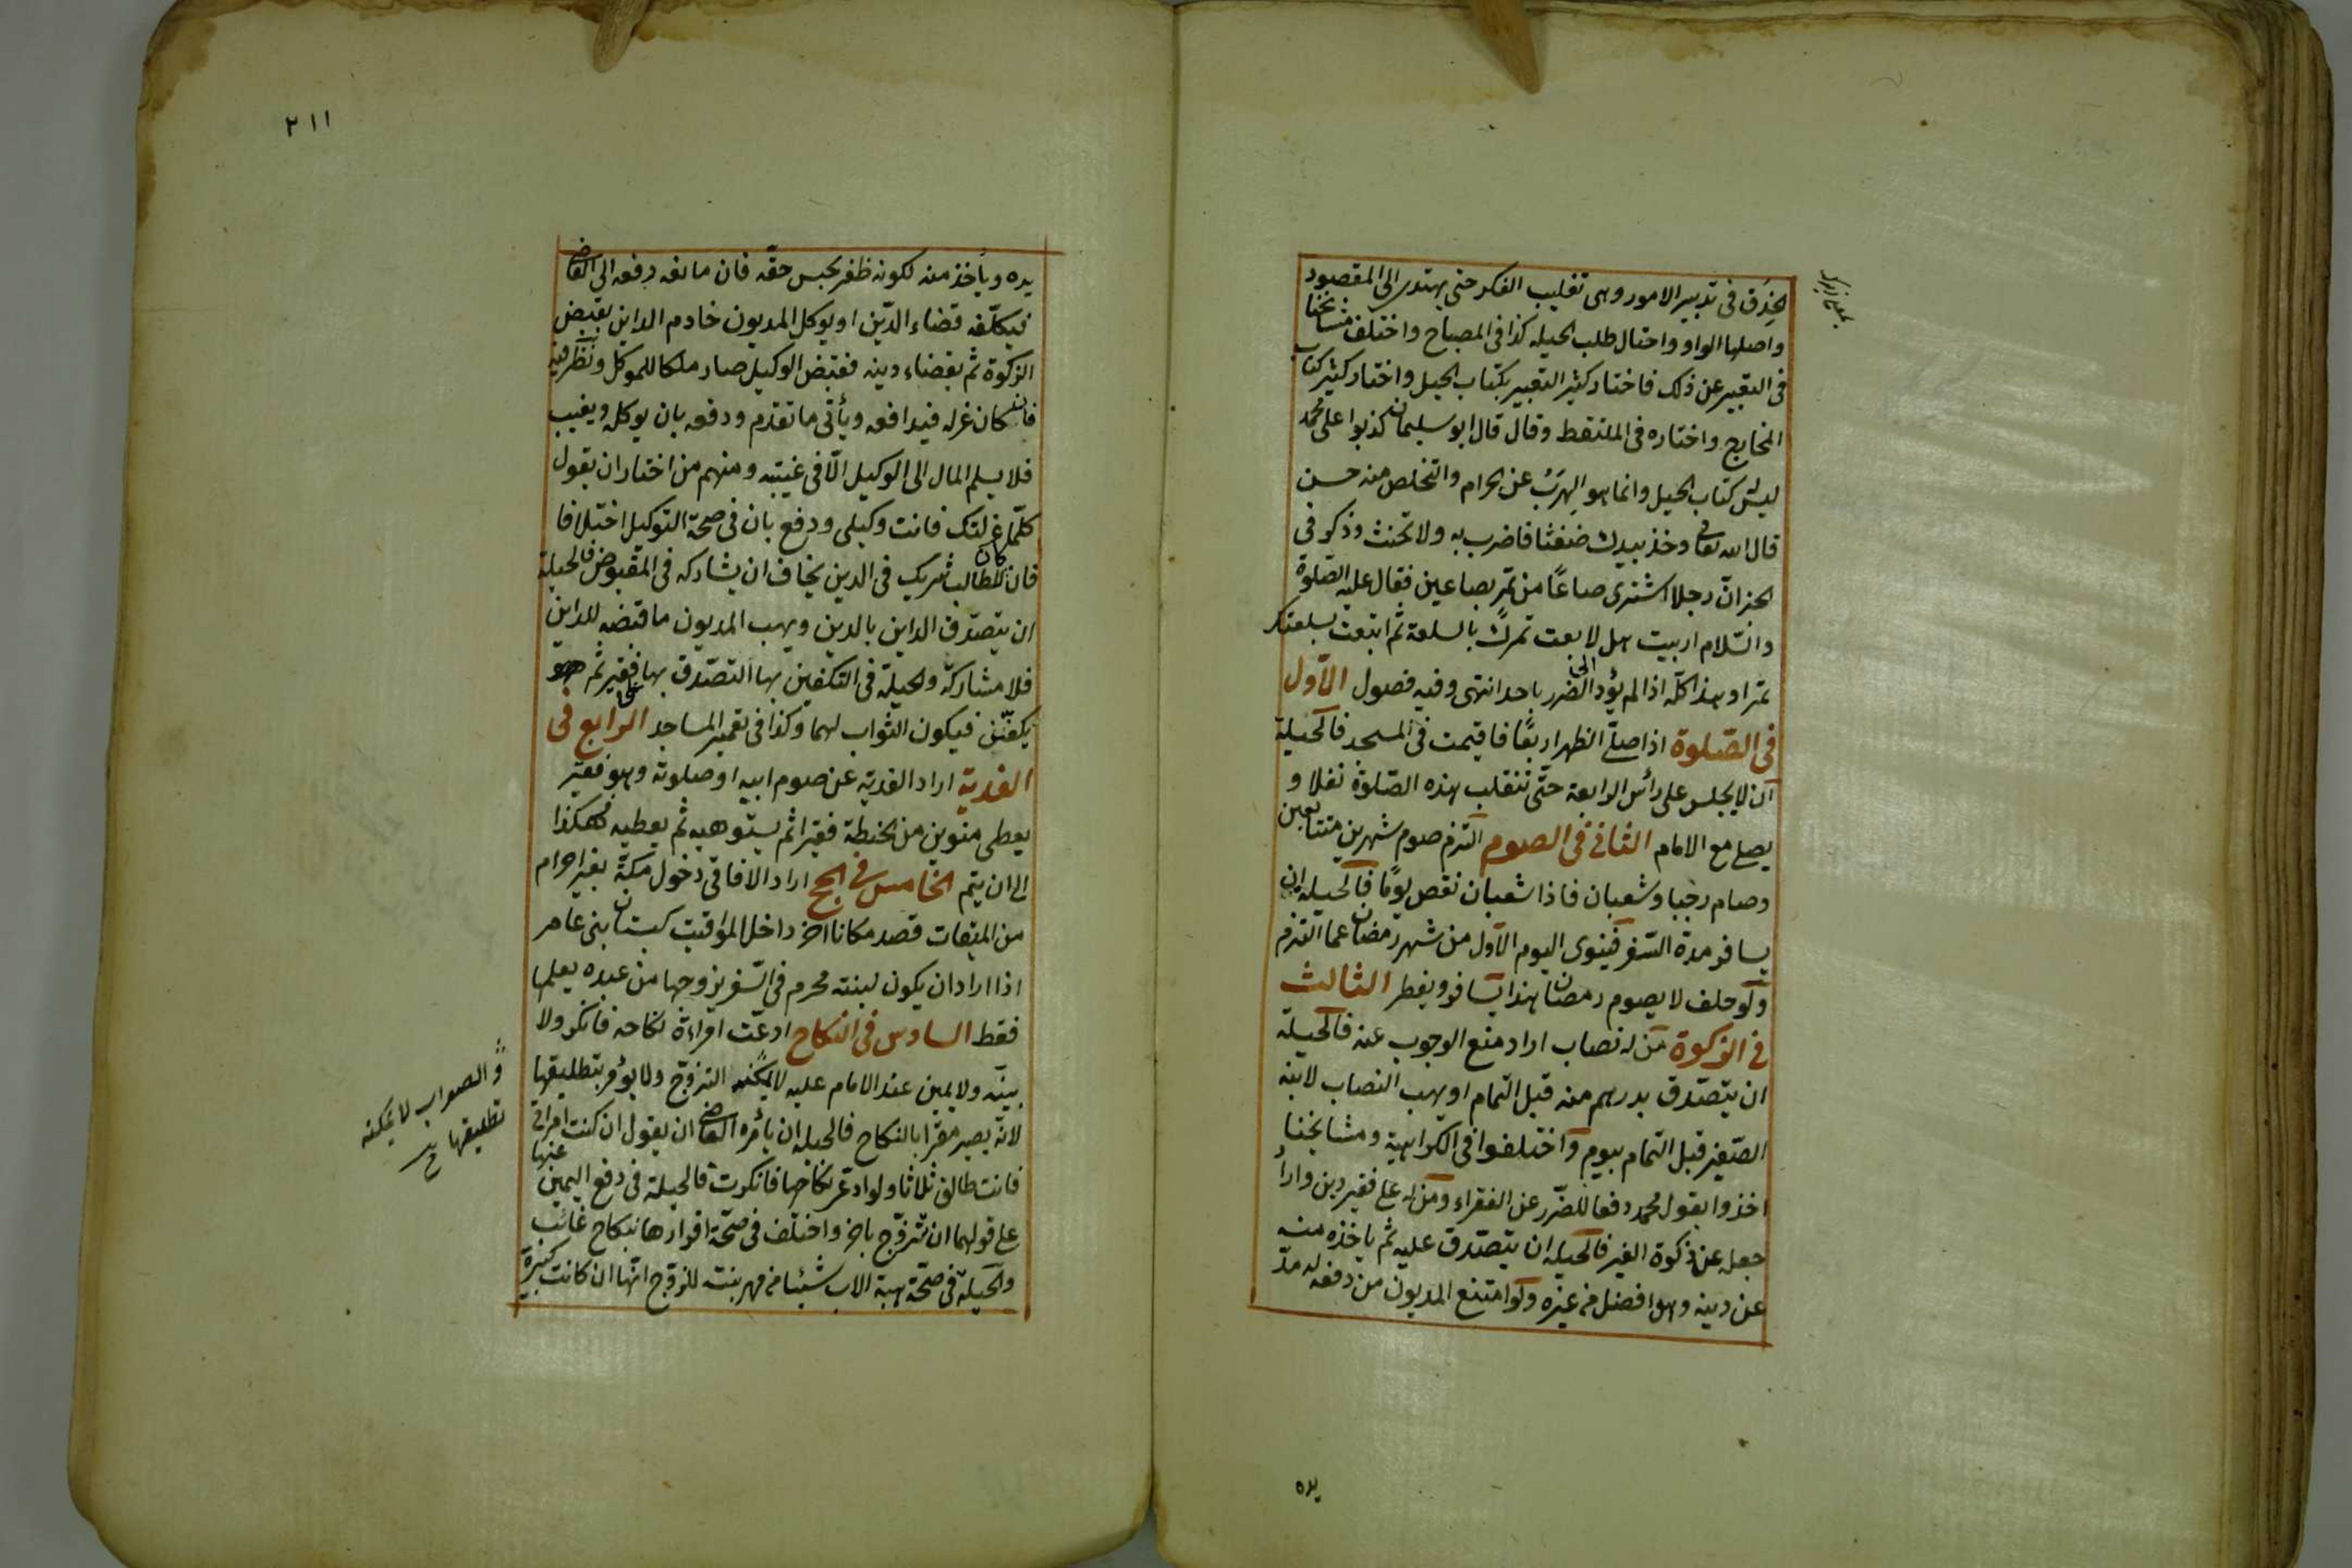 الحذق فى تدبير الامور وهى تقليب الفكر حتى يهتدى الى المقصود
واصلها الواو واحتال طلب الحيله كذا فى المصباح واختلف مشائخنا
فى التعبير عن ذلك فاختار كثير التعبير بكتاب الحيل واختار كثير كتاب
المخارج واختاره فى الملتقط وقال قال ابو سليمان كذبوا على محمد
ليس كتاب الحيل وانما هو الهرب عن الحرام والتخلص منه حسن
قال الله تعالى وخذ بيدك ضغثا فاضرب به ولا تحنث وذكر فى
الخبر ان رجلا اشترى صاعًا من تمر بصاعين فقال عليه الصلوة
والسّلام اربيت هل لا بعت تمرك بالسلعة ثم ابتعت بسلعتك
تمرا وهذا كلّه اذا لم يؤد الى الضرر باحد انتهى وفيه فصول الاّول
فى الصّلوة اذا صلّى الظهر اربعًا فاقيمت فى المسجد فالحيلة
ان لا يجلس على رأس الرابعة حتّى تنقلب هذه الصّلوة نفلا و
يصلى مع الامام الثانى فى الصوم التزم صوم شهرين متتابعين
وصام رجبا وشعبان فاذا شعبان نقص يومًا فالحيله ان
يسافر مدة السّفر فينوى اليوم الاول من شهر رمضان عما التزم
ولو حلف لا يصوم رمضان هذا يسافر ويفطر الثالث
فى الزكوة من له نصاب اراد منع الوجوب عنه فالحيلة
ان يتصدق بدرهم منه قبل التمام او يهب النصاب لابنه
الصّغير قبل التمام بيوم واختلفوا فى الكراهية ومشايخنا
اخذوا بقول محمد دفعا للضّرر عن الفقراء ومن له على فقير دين واراد
جعله عن زكوة الغير فالحيله ان يتصدق عليه ثم ياخذه منه
عن دينه وهو افضل من غيره ولو امتنع المديون من دفعه له مدّ
يده
٢١١
يده ويأخذ منه لكونه ظفر بجنس حقه فان مانعه دفعه الى القاضى
فيكلّفه قضاء الدّين او يوكل المديون خادم الداين بقبض
الزكوة ثم بقضاء دينه فقبض الوكيل صار ملكا للموكل ونظر فيه
فان كان غرله فيدافعه ويأتى ما تقدم ودفعه بان يوكله ويغيب
فلا يسلم المال الى الوكيل الّا فى غيبته ومنهم من اختار ان يقول
كلّما عزلتك فانت وكيلى ودفع بان فى صحة التوكيل اختلافا
فان كان للطالب شريك فى الدين يخاف ان يشاركه فى المقبوض فالحيلة
ان يتصدق الداين بالدين ويهب المديون ما قبضه للداين
فلا مشاركة والحيلة فى التكفين بها التصدق بها على فقير ثم هو
يكفّن فيكون الثواب لهما وكذا فى تعمير المساجد الرابع فى
الفدية اراد الفدية عن صوم ابيه او صلوته وهو فقير
يعطى منوين من الحنطة فقيرا ثم يستوهبه ثم يعطيه فهكذا
الى ان يتم الخامس فى الحج اراد الافاقى دخول مكة بغير احرام
من الميقات قصد مكانا اخر داخل المواقيت كبستان بنى عامر
اذا اراد ان يكون لبنته محرم فى السّفر يزوجها من عبده يعلمها
فقط السادس فى النكاح ادعت امراءة نكاحه فانكر ولا
بينه ولا يمين عند الامام عليه لا يمكنه التزوّج ولا يؤمر بتطليقها
لانه يصير مقرا بالنكاح فالحيله ان يأمره القاضى ان يقول ان كنت امراتى
فانت طالق ثلاثا ولو ادعى نكاحها فانكرت فالحيلة فى دفع اليمين عنها
على قولهما ان تتزوّج باخر واختلف فى صحّة اقرارها بنكاح غائب
والحيلة فى صحّة هبة الاب شيئا من مهر بنت للزوج انّها ان كانت كبيرة
والصواب لا يمكنه
تطليقها